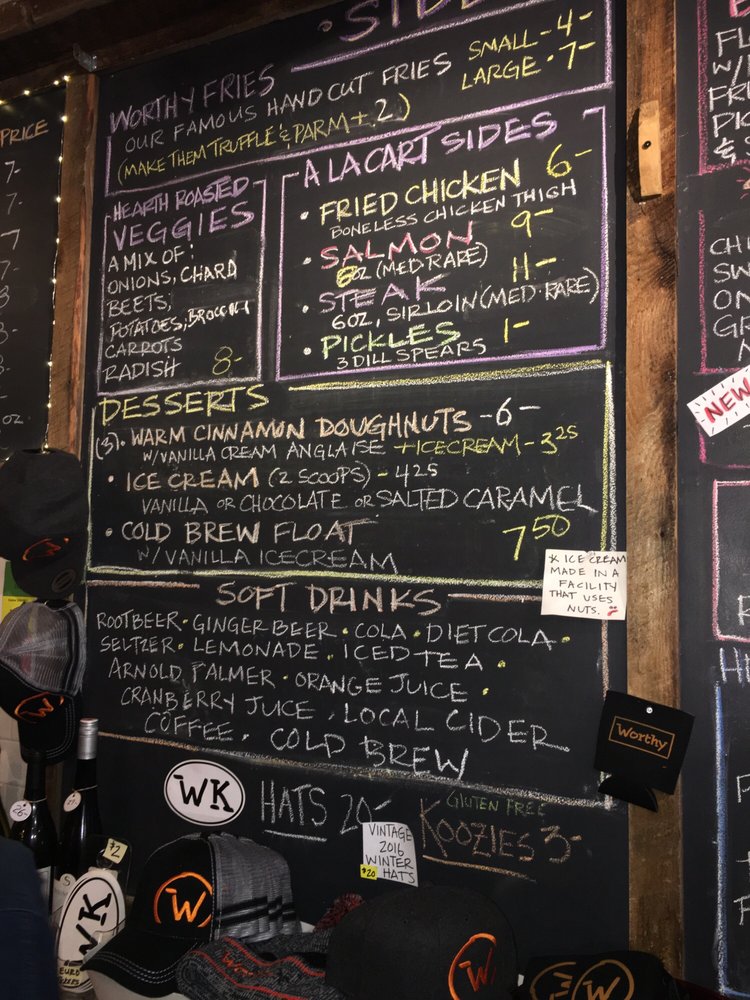 SIDE
WORTHY FRIES
OUR FAMOUS HAND CUT FRIES
SMALL - 4 -
LARGE • 7 -
(MAKE THEM TRUFFLE & PARM + 2)
HEARTH ROASTED
VEGGIES
A MIX OF:
ONIONS, CHARD
BEETS,
POTATOES, BROCCOLI
CARROTS
RADISH 8-
A LA CART SIDES
• FRIED CHICKEN 6-
BONELESS CHICKEN THIGH
• SALMON 9-
6OZ (MED RARE)
• STEAK 11-
6OZ, SIRLOIN (MED-RARE)
• PICKLES 1-
3 DILL SPEARS
DESSERTS
(3)• WARM CINNAMON DOUGHNUTS - 6 -
W/VANILLA CREAM ANGLAISE + ICECREAM - 3 25
• ICE CREAM (2 SCOOPS) - 4 25
VANILLA OR CHOCOLATE OR SALTED CARAMEL
• COLD BREW FLOAT 7 50
W/VANILLA ICECREAM
* ICE CREAM
MADE IN A
FACILITY
THAT USES
NUTS.
SOFT DRINKS
ROOTBEER • GINGER BEER • COLA • DIET COLA •
SELTZER • LEMONADE • ICED TEA •
ARNOLD PALMER • ORANGE JUICE •
CRANBERRY JUICE • LOCAL CIDER
COFFEE • COLD BREW
Worthy
WK
HATS 20-
GLUTEN FREE
KOOZIES 3-
VINTAGE
2016
WINTER
HATS
$20
$2
WK
EURO
W
W
W
W
PRICE
7-
7-
7
7-
OZ
NEW